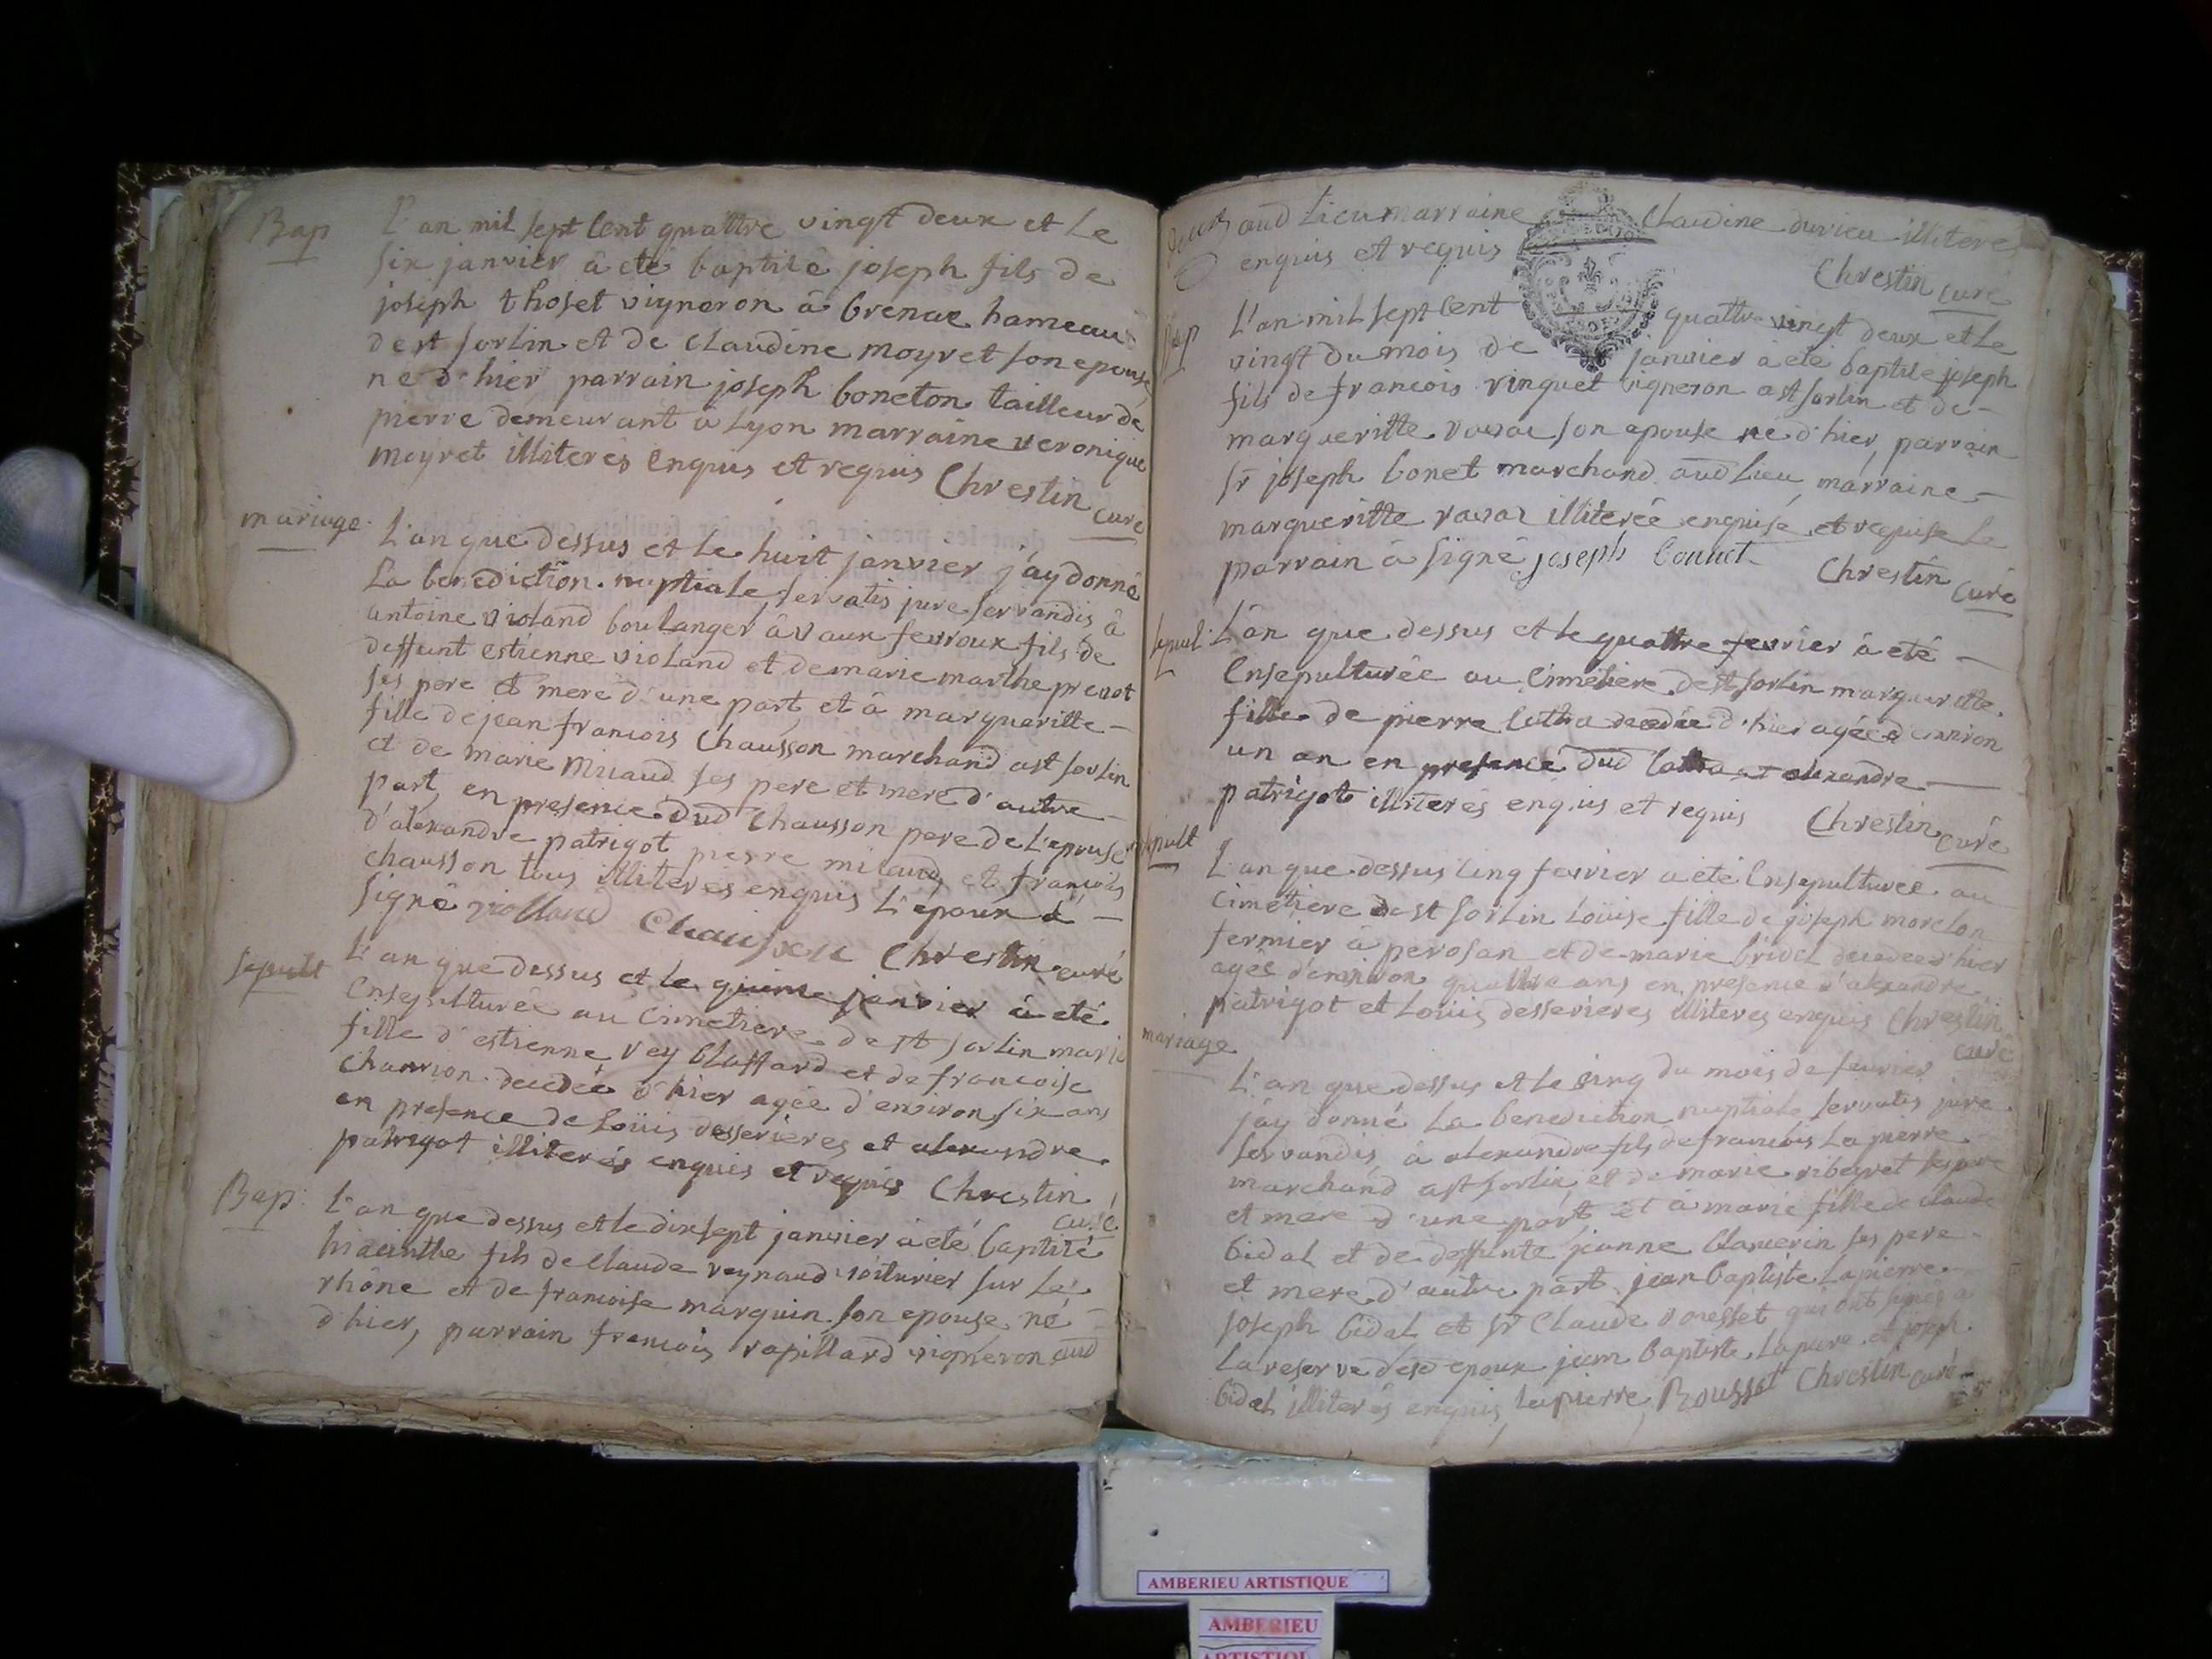 Bap
L'an mil sept cent quattre vingt deux et le
six janvier à eté baptisé joseph fils de
joseph thoset vigneron à brenae hameau
de st sorlin et de claudine moyret son epouse
né d'hier, parrain joseph boneton tailleur de
pierre demeurant à Lyon marraine veronique
moyret illiterés enquis et requis Chrestin curé
mariage
L'an que dessus et le huit janvier j'ay donné
La benediction nuptiale servatis jure servandis à
antoine violand boulanger à vaux fevroux fils de
deffunt estienne violand et de marie marthe prevot
ses pere et mere d'une part, et à margueritte
fille de jean francois Chausson marchand a st sorlin
et de marie Milaud ses pere et mere d'autre
part, en presence dud Chausson pere de L'epouse
d'alexandre patrigot pierre milaud et francois
chausson tous illiterés enquis L'époux à
signé violland Chausson Chrestin curé
sepult
L'an que dessus et le quinse janvier à eté
Ensepulturée au Cimetiere de st sorlin marie
fille d'estienne vey blaffard et de francoise
Chanrion decedée d'hier agée d'environ six ans
en presence de Loüis desserieres et alexandre
patrigot illiterés enquis et requis Chrestin
curé
Bap:
L'an que dessus et le dix sept janvier à eté baptisé
hiacinthe fils de claude reynaud voiturier sur Le
rhône et de francoise marquin son epouse, né
d'hier, parrain francois rapillard vigneron aud
aud Lieu marraine Claudine durieu illiteres
enquis et requis Chrestin curé
Bap
L'an mil sept cent quattre vingt deux et le
vingt du mois de janvier à eté baptisé joseph
fils de francois vinquet vigneron a st sorlin et de
margueritte ravat son epouse né d'hier, parrain
sr joseph bonet marchand aud Lieu, marraine
margueritte ravat illiterée enquise et requise Le
parrain à signé joseph bonnet Chrestin curé
sepul:
L'an que dessus et le quattre fevrier à eté
Ensepulturée au Cimetiere de st sorlin margueritte
fille de pierre Cottra decedée d'hier agée d'environ
un an en presence dud Cottra et alexandre
patrigot illiterés enquis et requis Chrestin curé
sepult
L'an que dessus cinq fevrier a eté Ensepulturée au
Cimetiere de st sorlin Loüise fille de joseph morelon
fermier à perosan et de marie bridel decedée d'hier
agée d'environ quattre ans en presence d'alexandre
patrigot et Loüis desserieres illiteres enquis Chrestin
curé
mariage
L'an que dessus et le cinq du mois de fevrier
j'ay donné La benediction nuptiale servatis jure
servandis à alexandre fils de francois Lapierre
marchand a st sorlin et de marie ribeyret ses pere
et mere d'une part, et à marie fille de claude
bidal et de deffunte jeanne blamerin ses pere
et mere d'autre part. jean baptiste Lapierre
joseph bidal et sr Claude rousset qui ont signés a
La reserve desd epoux jean baptiste Lapierre et joseph
bidal illiterés enquis, Lapierre, Rousset Chrestin curé
AMBERIEU ARTISTIQUE
AMBERIEU
ARTISTIQUE